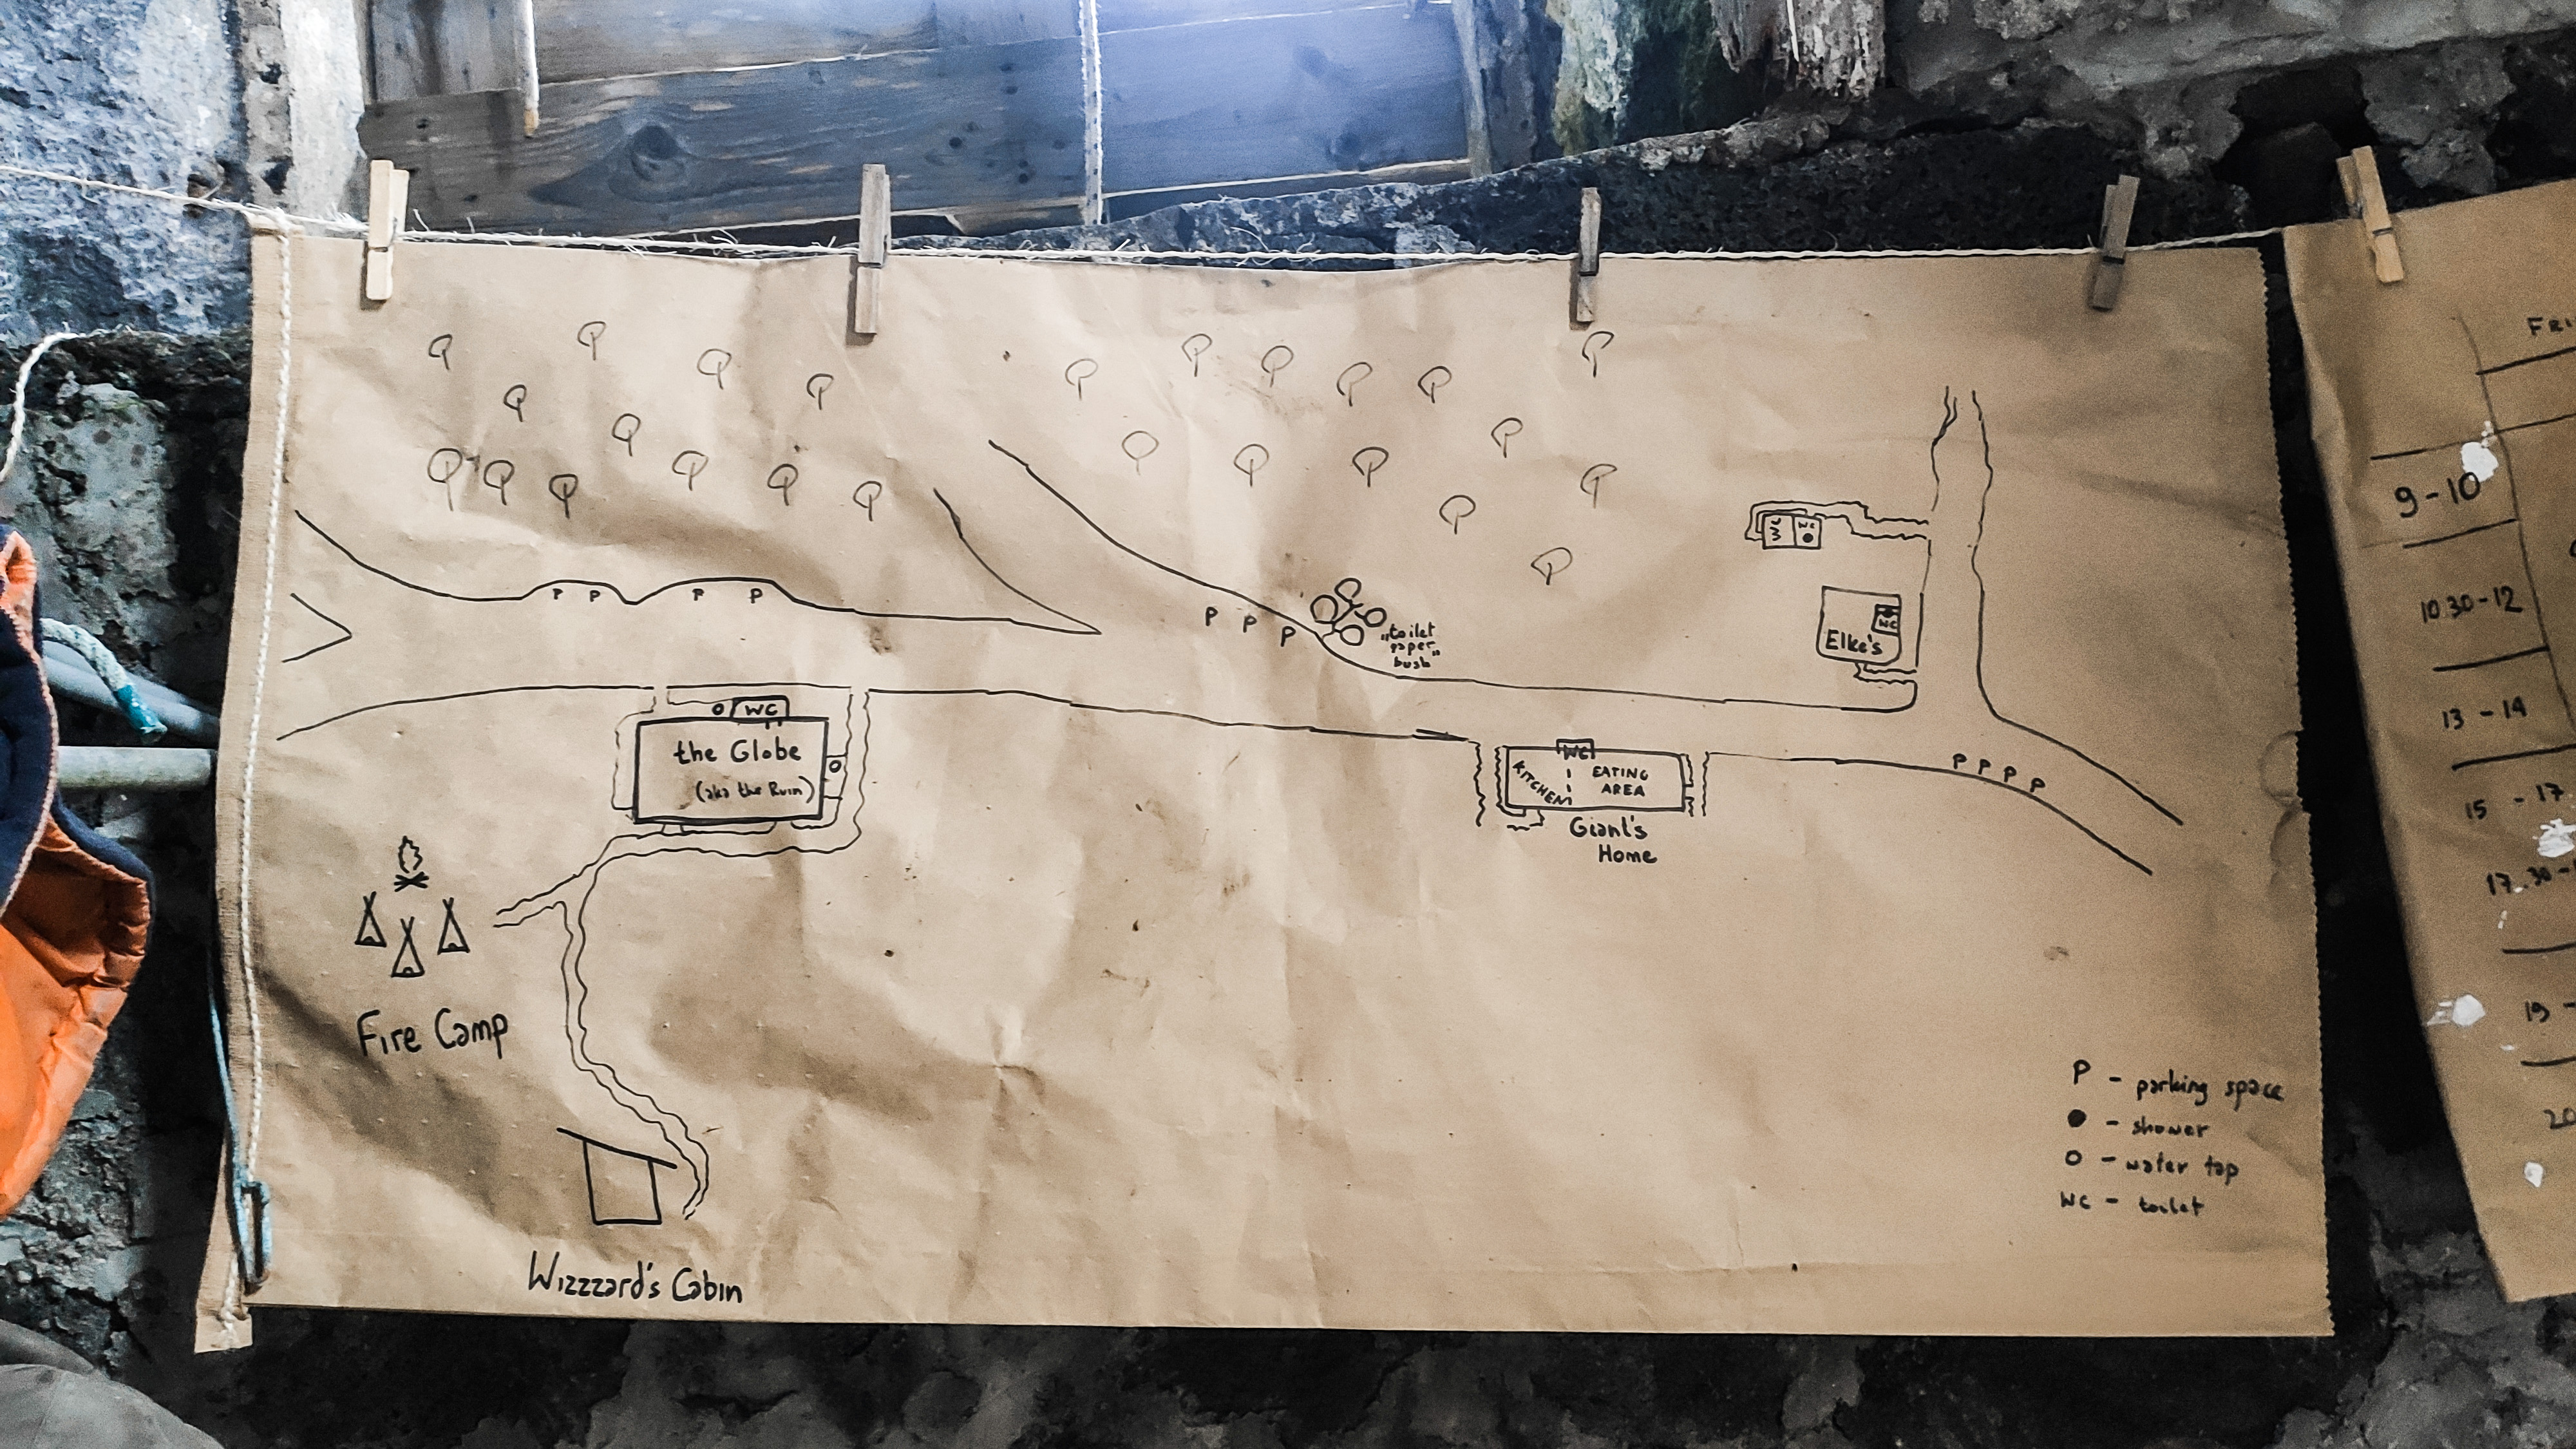 P P P P
P P P
"toilet
paper
bush"
WC
WC
Elke's
WC
the Globe
(aka the Ruin)
WC
KITCHEN
EATING
AREA
Giant's
Home
P P P P
Fire Camp
Wizzzard's Cabin
P - parking space
● - shower
O - water tap
WC - toilet
9-10
10.30-12
13-14
15-17